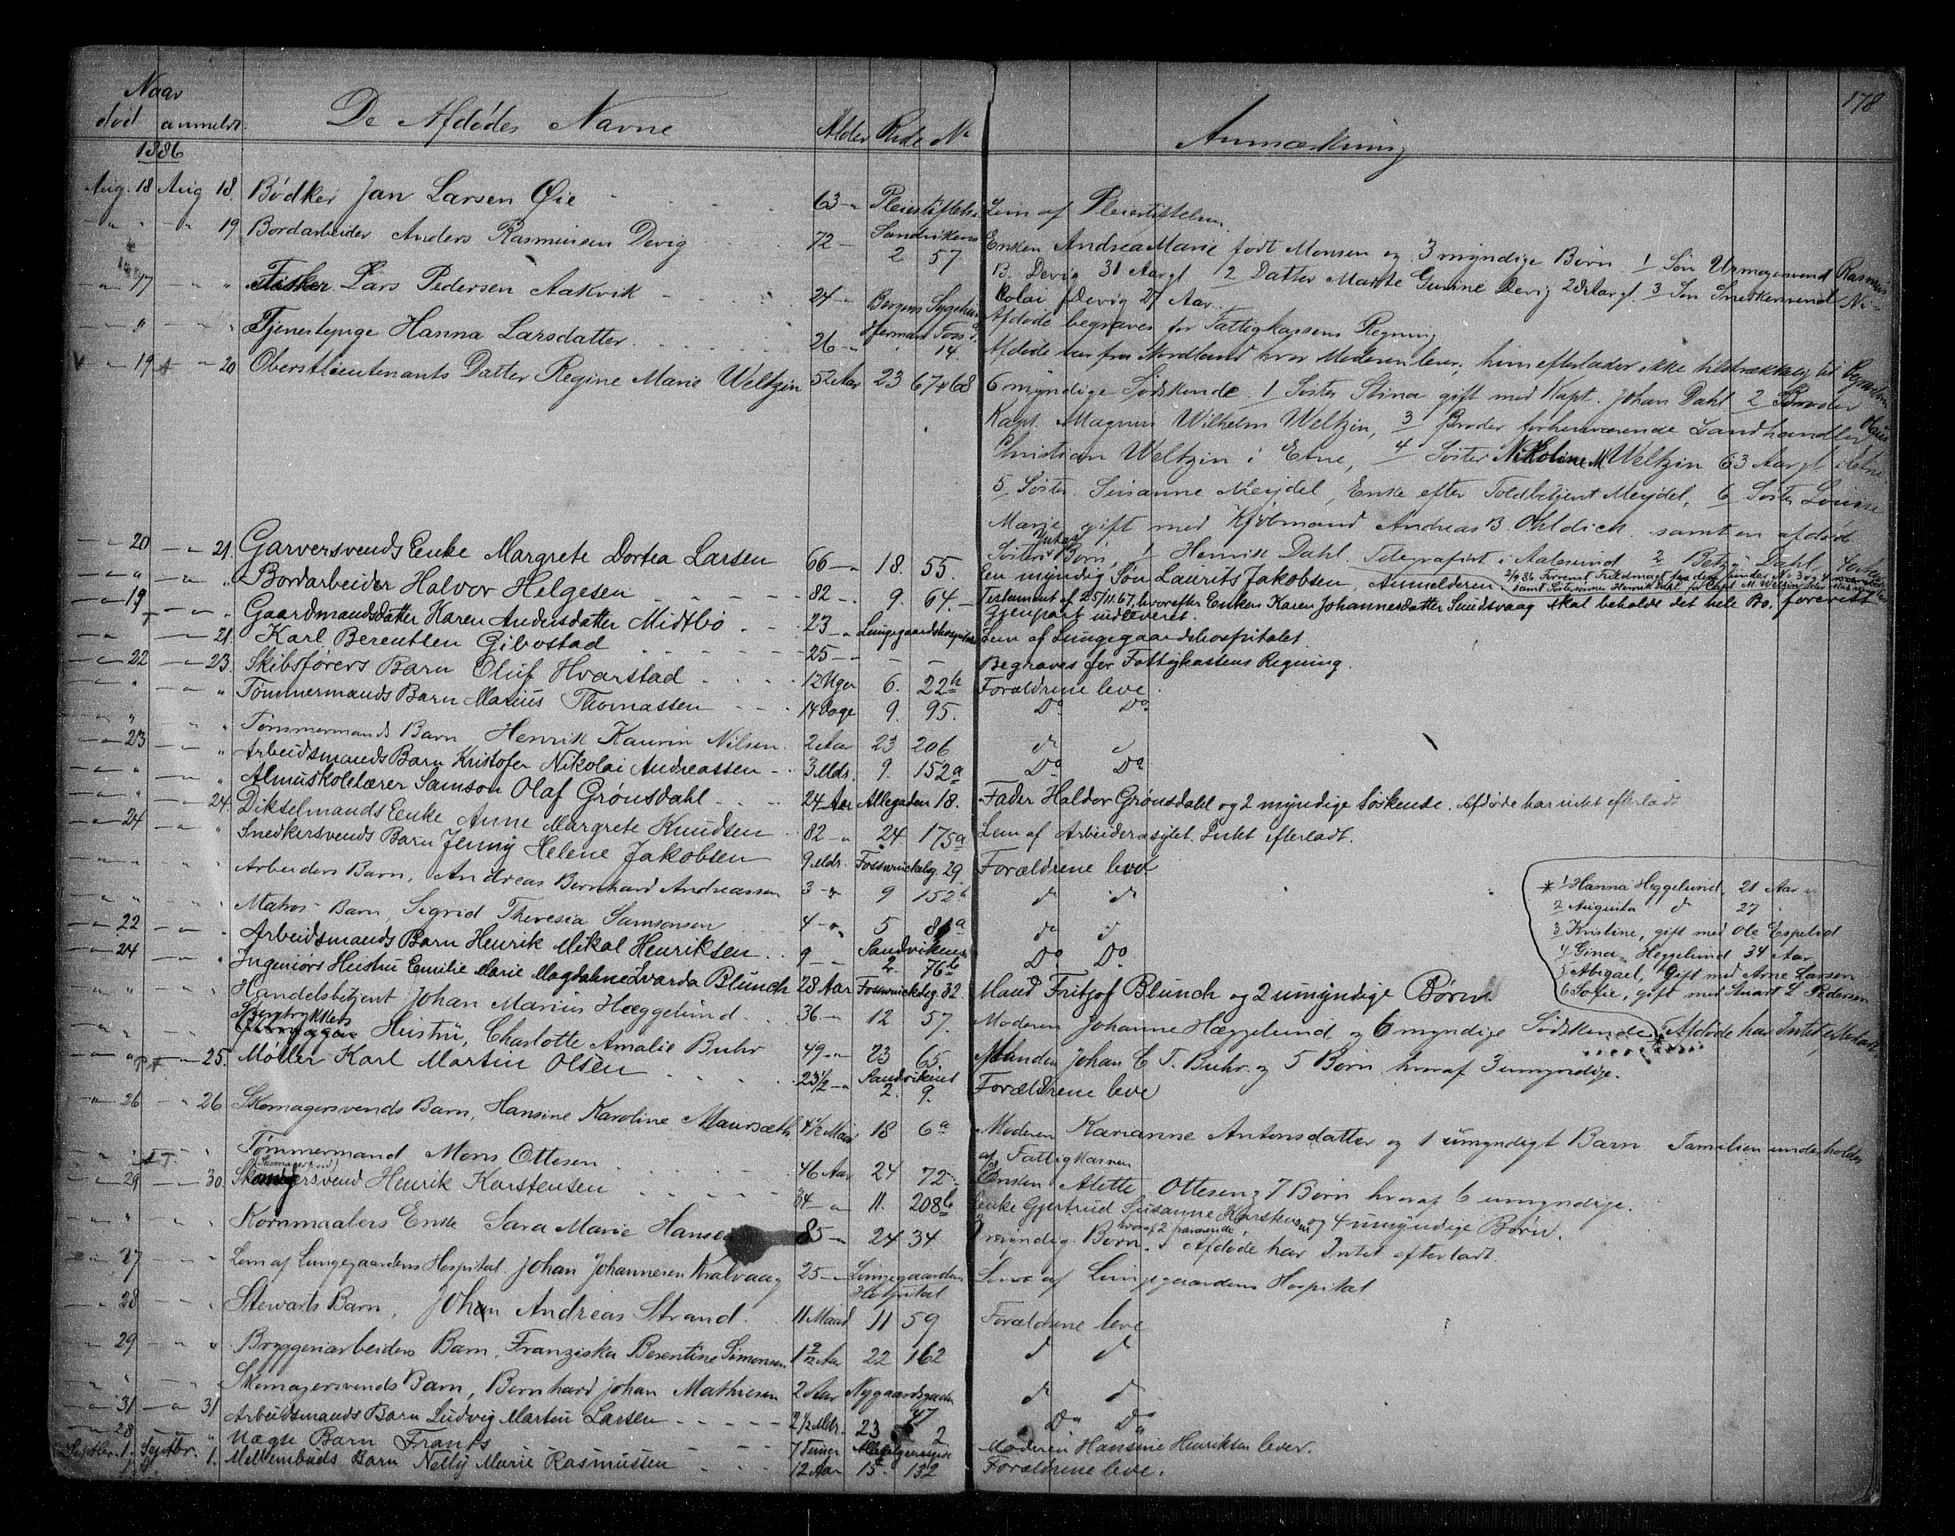 178
Naar
död anmeldt. De Afdödes Navne Alder Rode No Anmærkning
1886
Aug. 18 Aug 18. Bödker Jan Larsen Öie 63 - " Pleiestiftelse Lem af Pleiestiftelsen.
" - " 19. Bordarbeider Anders Rasmussen Devig 72 - Sandvikens 2 57 Enken Andrea Marie födt Monsen og 3 myndige Börn 1 Sön Urmagersvend Rasmus
B. Devig 31 Aar gl 2 Datter Marte Gurine Devig 28 Aar gl. 3 Sön Snedkersvend Ni-
kolai Devig 27 Aar.
17 - " Fisker Lars Pedersen Aakvik 24 - " Bergens Sygehus Afdöde begraves for Fattigkassens Regning
" Tjenestepige Hanna Larsdatter 26 - " Herman Foss G. 14. Afdöde var fra Nordland hvor Moderen lever, hun efterlader ikke tilstrækkelig til Begravelsen
19 - 20 Oberstlieutenants Datter Regine Marie Weltzin 52 Aar 23 67 68 6 myndige Södskende 1 Söster Stina gift med Kapt. Johan Dahl 2 Broder
Kapt. Magnus Wilhelm Weltzin, 3 Broder forhenværende Landhandler Claus
Christian Weltzin i Etne, 4 Söster Nikoline M. Weltzin 63 Aar gl
5 Söster Susanne Meydel, Enke efter Toldbetjent Meydel, 6 Söster Louise
Marie gift med Kjöbmand Andreas B. Ohldieck samt en afdöd
Sösters Börn, 1 Henrik Dahl Telegrafist i Aalesund 2 Betzy Dahl
20 - 21. Garversvends Enke Margrete Dortea Larsen 66 - " 18. 55. Een myndig Sön Laurits Jakobsen, Anmelderen
" Bordarbeider Halvor Helgesen 82 - " 9. 64. Testament af 25/11.67, hvorefter Enken Karen Johannesdatter Sundsvaag skal beholde det hele Bo. forevist
Gjenpart indleveret.
19 " Gaardmandsdatter Karen Andersdatter Midtbö 23 - " Lungegaardshospitalet Lem af Lungegaardshospitalet.
" 21. Karl Berentsen Gibostad 25 - " - - Begraves for Fattigkassens Regning.
22 - 23. Skibsförers Barn Oluf Hvarstad 12 Uger 6. 22b Forældrene leve.
" Tömmermands Barn Marius Thomassen 14 Dage 9. 95. Do Do
" Tömmermands Barn Henrik Kaurin Nilsen 2 Aar 23 206 do do
23 " Arbeidsmands Barn Kristofer Nikolai Andreassen 3 Mdr. 9. 152a Do Do
" Almuskolelærer Samson Olaf Grönsdahl 24 Aar Allegaden 18. Fader Haldor Grönsdahl og 2 myndige Söskende. Afdöde har intet efterladt
" 24. Dikselmands Enke Anne Margrete Knudsen 82 - " 24 175a Lem af Arbeiderasylet. Intet efterladt.
24 " Snedkersvends Barn Jenny Helene Jakobsen 9 Mdr. Fosswinckelsg 29. Forældrene leve
" Arbeiders Barn, Andreas Bernhard Andreassen 3 - " 9 152b do do
" Matros Barn, Sigrid Theresia Samsonsen 4 - " 5 81a do do
22 " Arbeidsmands Barn Henrik Mikal Henriksen 9 - " Sandvikens 2. 76b Do Do
24 " Ingeniörs Hustru Emilie Marie Magdalene Ivarda Blunck 28 Aar Fosswinckelsg 32. Mand Fritjof Blunck og 2 umyndige Börn
" Handelsbetjent Johan Marius Hæggelund 36 - " 12 57. Moderen Johanne Hæggelund og 6 myndige Södskende* Afdöde har Intet efterladt
* 1 Hanna Heggelund, 21 Aar
2 Augusta do 27
3 Kristine, gift med Ole Espelid
4 Gina Heggelund 34 Aar
5 Abigael, Gift med Arne Larsen
6 Sofie, gift med Stuart L Pedersen
" Bogtrykkers Hustru, Charlotte Amalie Buhr 49 - " 23 65. Manden Johan C. T. Buhr og 5 Börn hvoraf 3 umyndige.
" 25. Möller Karl Martin Olsen 23 1/2 - " Sandvikens 2. 9. Forældrene leve
26 - " 26 Skomagersvends Barn, Hansine Karoline Maursæth 4 1/2 Maan 18 6a Moderen Karianne Antonsdatter og 1 umyndigt Barn Familien underholdes
af Fattigkassen
" Tömmermand Mons Ottesen 46 Aar 24 72 Enken Alette Ottesen og 7 Börn hvoraf 6 umyndige.
29 - 30. Skomagersvend Henrik Karstensen 34 - " 11. 208b Enke Gjertrud Susanne Karstensen og 4 umyndige Börn.
" Kornmaalers Enke Sara Marie Hansen 85 - " 24 34 3 myndig Börn. hvoraf 2 fraværende Afdöde har Intet efterladt.
27 " Lem af Lungegaardens Hospital. Johan Johannesen Kvalvaag 25 - " Lungegaardens Hospital Lem af Lungegaardens Hospital
28 " Stewarts Barn, Johan Andreas Strand. 11 Maad 11 59 Forældrene leve
29 - " Bryggeriarbeiders Barn, Franziska Berentine Simonsen 1 2/12 Aar 22 162 do do
" Skomagersvends Barn, Bernhard Johan Mathiesen 2 Aar Nygaardsgaden 47 do do
31 - 31 Arbeidsmands Barn Ludvig Martin Larsen 2 1/2 Mdr. 23 2 Do Do
28 " Uægte Barn Frants 7 Timer Moderen Hansine Henriksen lever.
Septbr. 1. Septbr. 1. Mellembuds Barn Nelly Marie Rasmussen 12 Aar 15. 132 Forældrene leve.